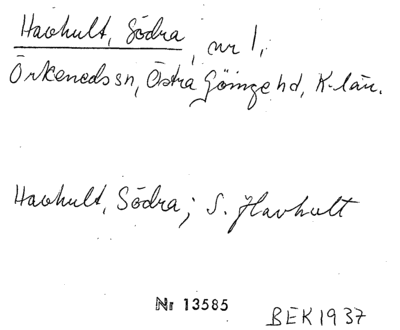 Havhult, Södra, nr 1,
Örkeneds sn, Östra Göinge hd, K-län.
Havhult, Södra; S. Havhult
Nr 13585
BEK1937